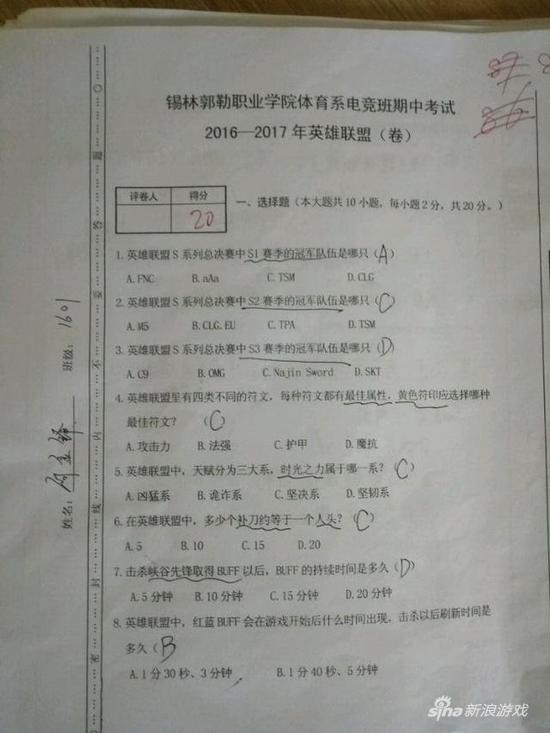 锡林郭勒职业学院体育系电竞班期中考试
2016—2017年英雄联盟（卷）
评卷人 得分
20
一、选择题（本大题共10小题，每小题2分，共20分。）
1. 英雄联盟S系列总决赛中S1赛季的冠军队伍是哪只（A）
A. FNC B. aAa C. TSM D. CLG
2. 英雄联盟S系列总决赛中S2赛季的冠军队伍是哪只（C）
A. M5 B. CLG. EU C. TPA D. TSM
3. 英雄联盟S系列总决赛中S3赛季的冠军队伍是哪只（D）
A. C9 B. OMG C. Najin Sword D. SKT
4. 英雄联盟里有四类不同的符文，每种符文都有最佳属性，黄色符印应选择哪种
最佳符文？（C）
A. 攻击力 B. 法强 C. 护甲 D. 魔抗
5. 英雄联盟中，天赋分为三大系，时光之力属于哪一系？（C）
A. 凶猛系 B. 诡诈系 C. 坚决系 D. 坚韧系
6. 在英雄联盟中，多少个补刀约等于一个人头？（C）
A. 5 B. 10 C. 15 D. 20
7. 击杀峡谷先锋取得BUFF以后，BUFF的持续时间是多久（D）
A. 5分钟 B. 10分钟 C. 15分钟 D. 20分钟
8. 英雄联盟中，红蓝BUFF会在游戏开始后什么时间出现，击杀以后刷新时间是
多久（B）
A. 1分30秒、3分钟 B. 1分40秒、5分钟
班级：1601
姓名：
密 封 线 内 不 要 答 题
sina新浪游戏